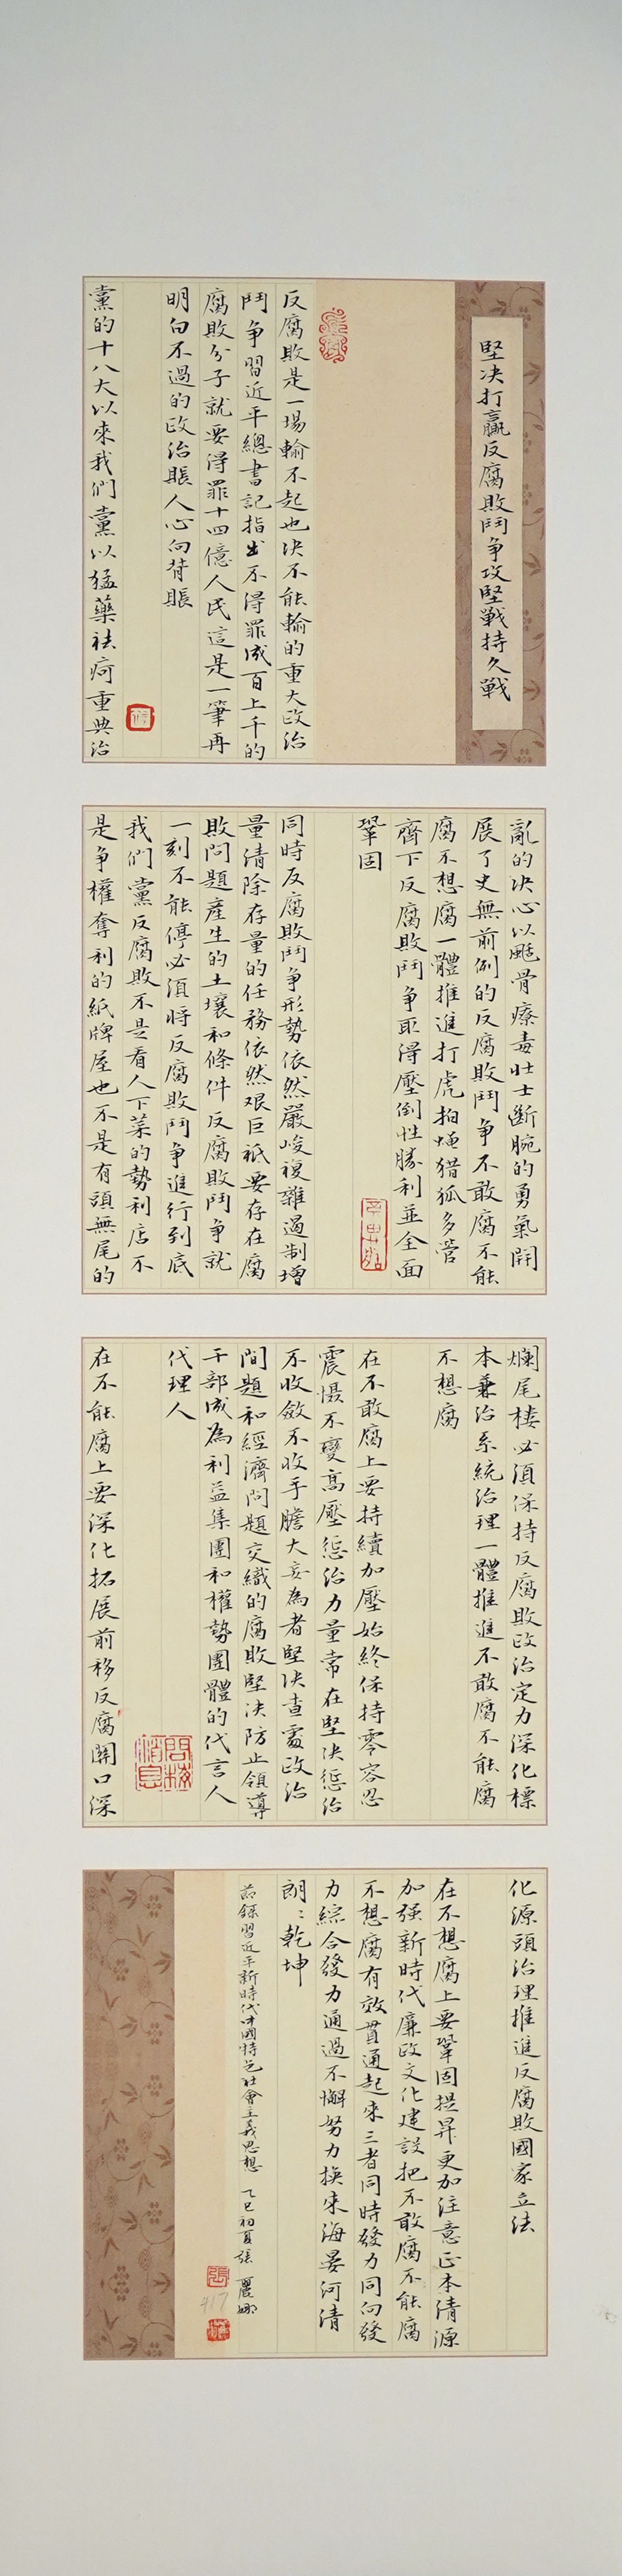 堅决打贏反腐敗鬥争攻堅戰持久戰
反腐敗是一場輸不起也决不能輸的重大政治
鬥争習近平總書記指出不得罪成百上千的
腐敗分子就要得罪十四億人民這是一筆再
明白不過的政治賬人心向背賬
黨的十八大以來我們黨以猛藥祛疴重典治
亂的决心以颳骨療毒壯士斷腕的勇氣開
展了史無前例的反腐敗鬥争不敢腐不能
腐不想腐一體推進打虎拍蝇猎狐多管
齊下反腐敗鬥争取得壓倒性勝利並全面
鞏固
同時反腐敗鬥争形勢依然嚴峻複雜遏制增
量清除存量的任務依然艰巨祇要存在腐
敗問題產生的土壤和條件反腐敗鬥争就
一刻不能停必須將反腐敗鬥争進行到底
我們黨反腐敗不是看人下菜的勢利店不
是争權奪利的紙牌屋也不是有頭無尾的
爛尾樓必須保持反腐敗政治定力深化標
本兼治系統治理一體推進不敢腐不能腐
不想腐
在不敢腐上要持續加壓始終保持零容忍
震慑不變高壓惩治力量常在堅决惩治
不收斂不收手膽大妄為者堅决查處政治
問題和經濟問題交織的腐敗堅决防止領導
干部成為利益集團和權勢團體的代言人
代理人
在不能腐上要深化拓展前移反腐關口深
化源頭治理推進反腐敗國家立法
在不想腐上要鞏固提昇更加注意正本清源
加强新時代廉政文化建設把不敢腐不能腐
不想腐有效貫通起來三者同時發力同向發
力綜合發力通過不懈努力换來海晏河清
朗〻乾坤
節錄習近平新時代中國特色社會主義思想 乙巳初夏張麗娜
417